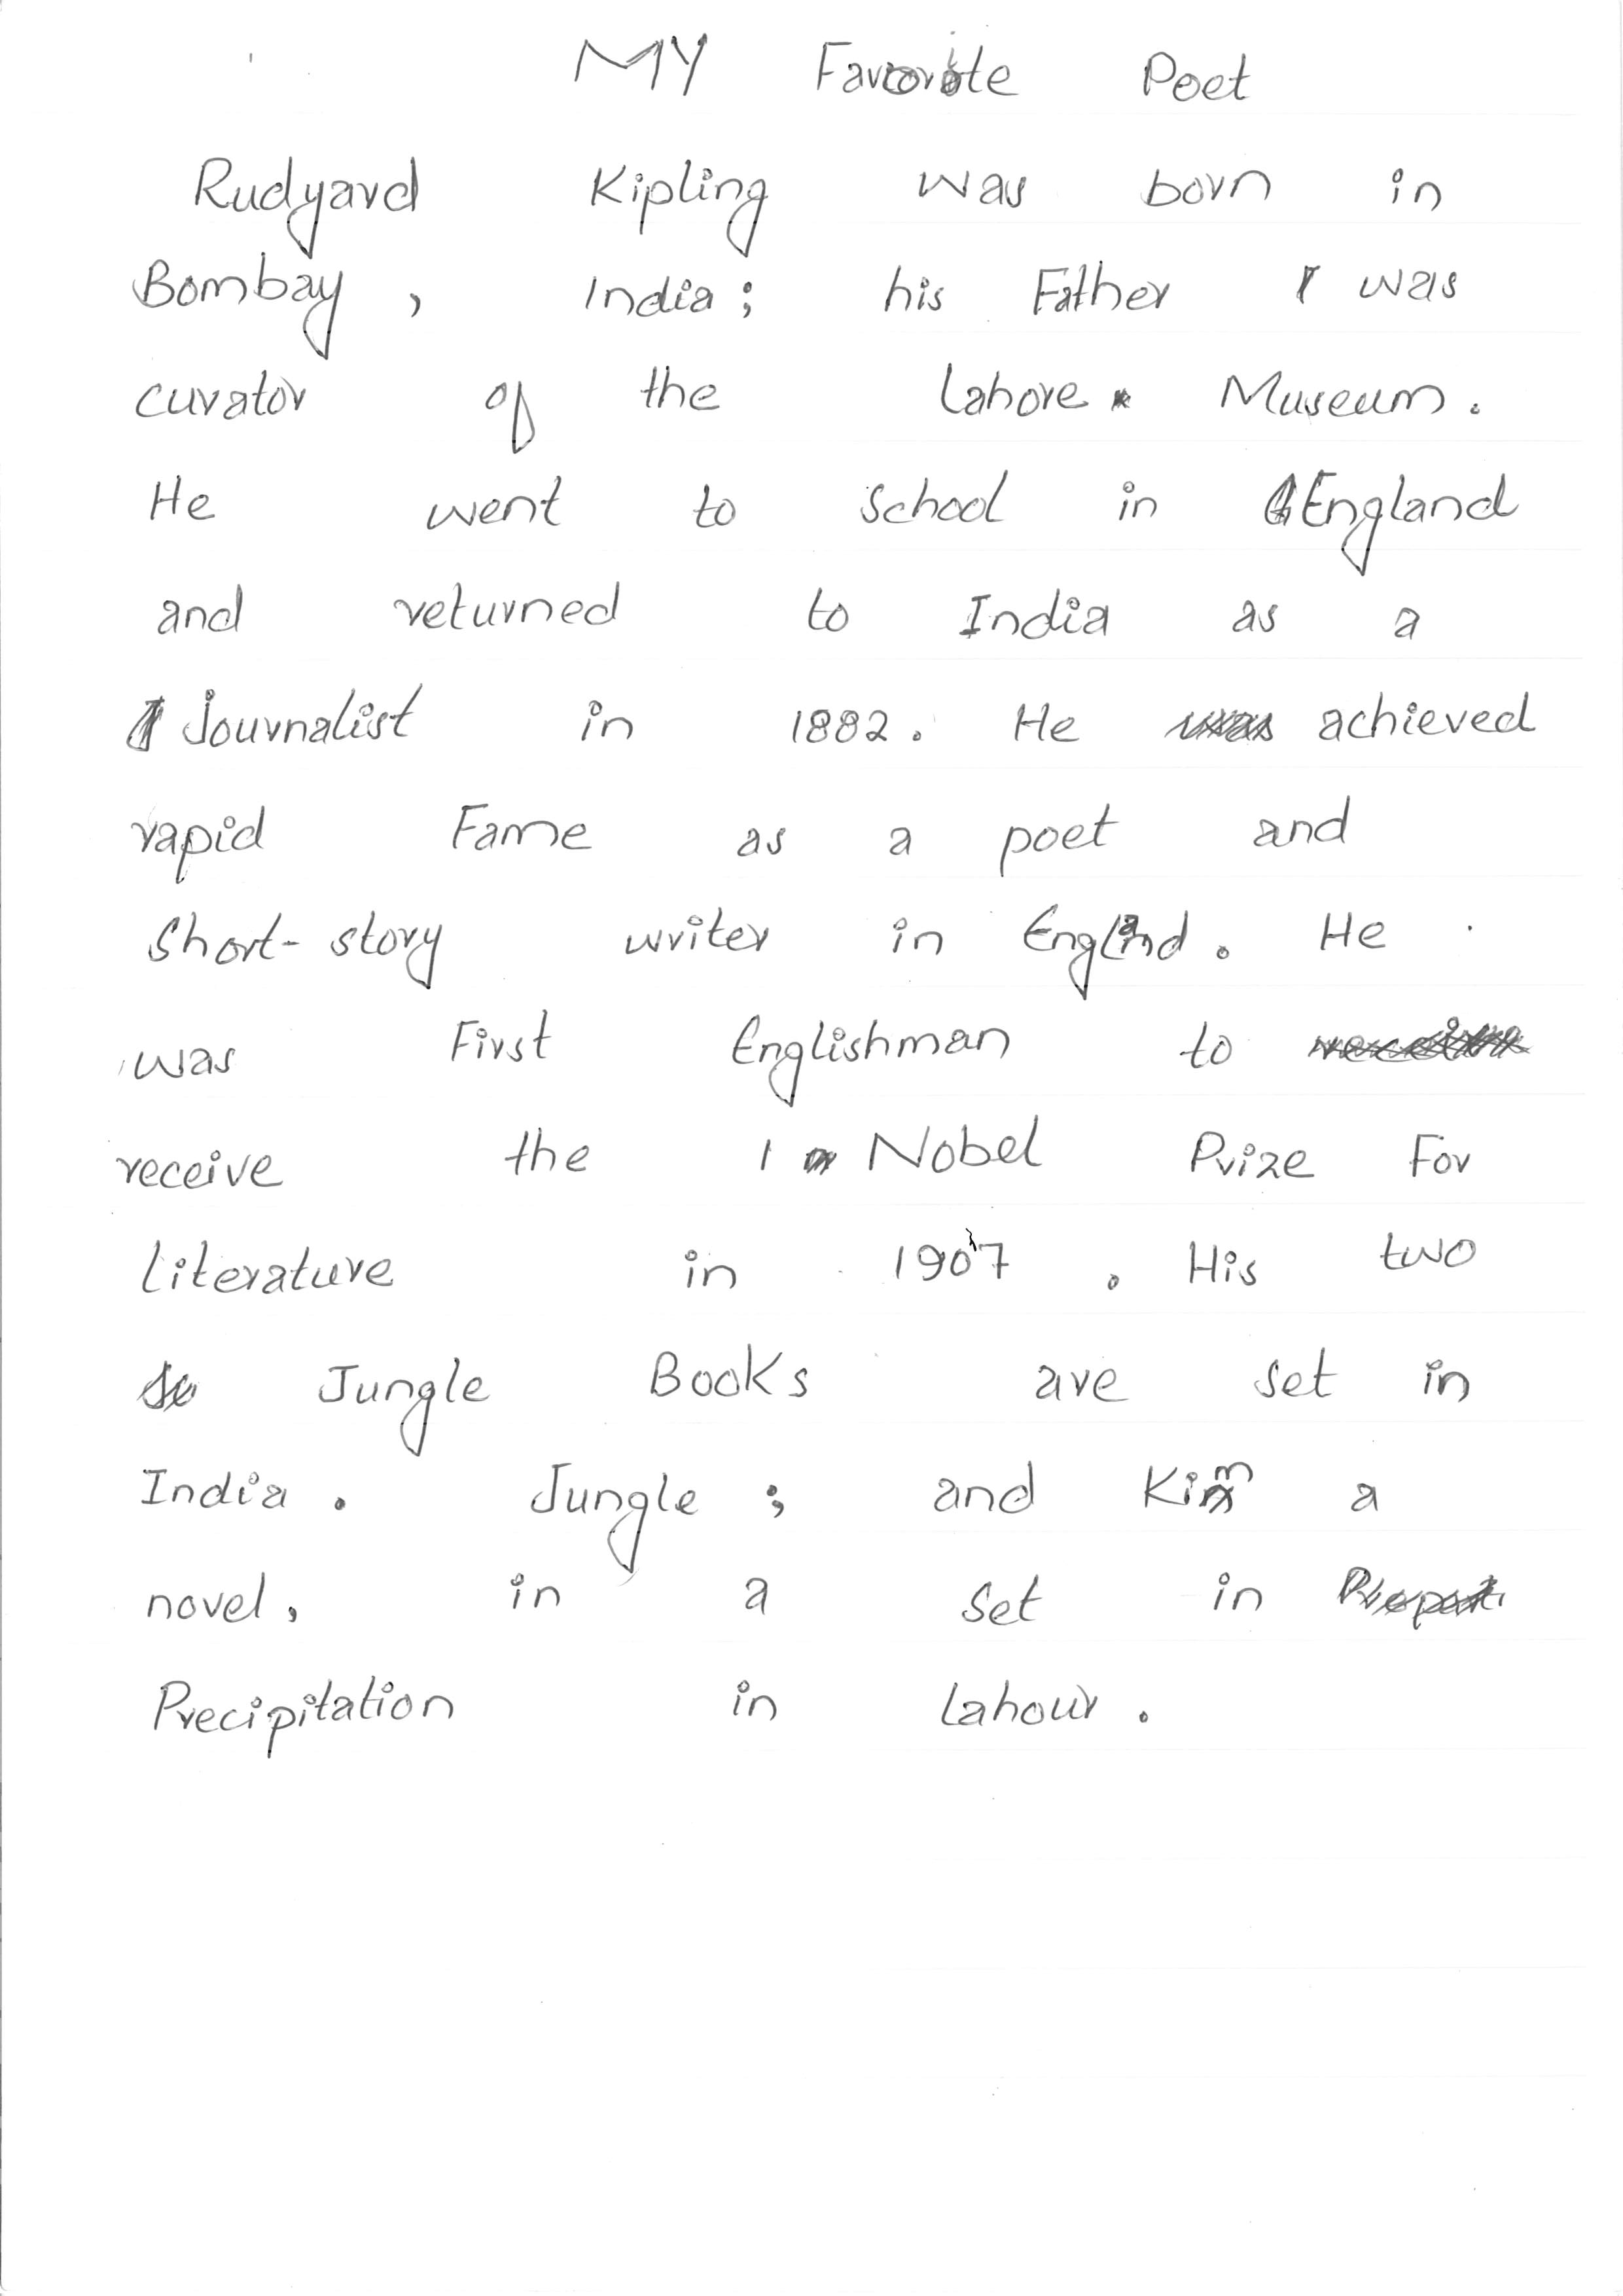 MY Favorite Poet
Rudyard Kipling was born in
Bombay, India; his Father was
curator of the Lahore Museum.
He went to school in England
and returned to India as a
journalist in 1882. He achieved
rapid Fame as a poet and
short-story writer in England. He
was First Englishman to
receive the 1 Nobel Prize For
literature in 1907. His two
Jungle Books are set in
India. Jungle; and Kim a
novel, in a set in
Precipitation in Lahour.